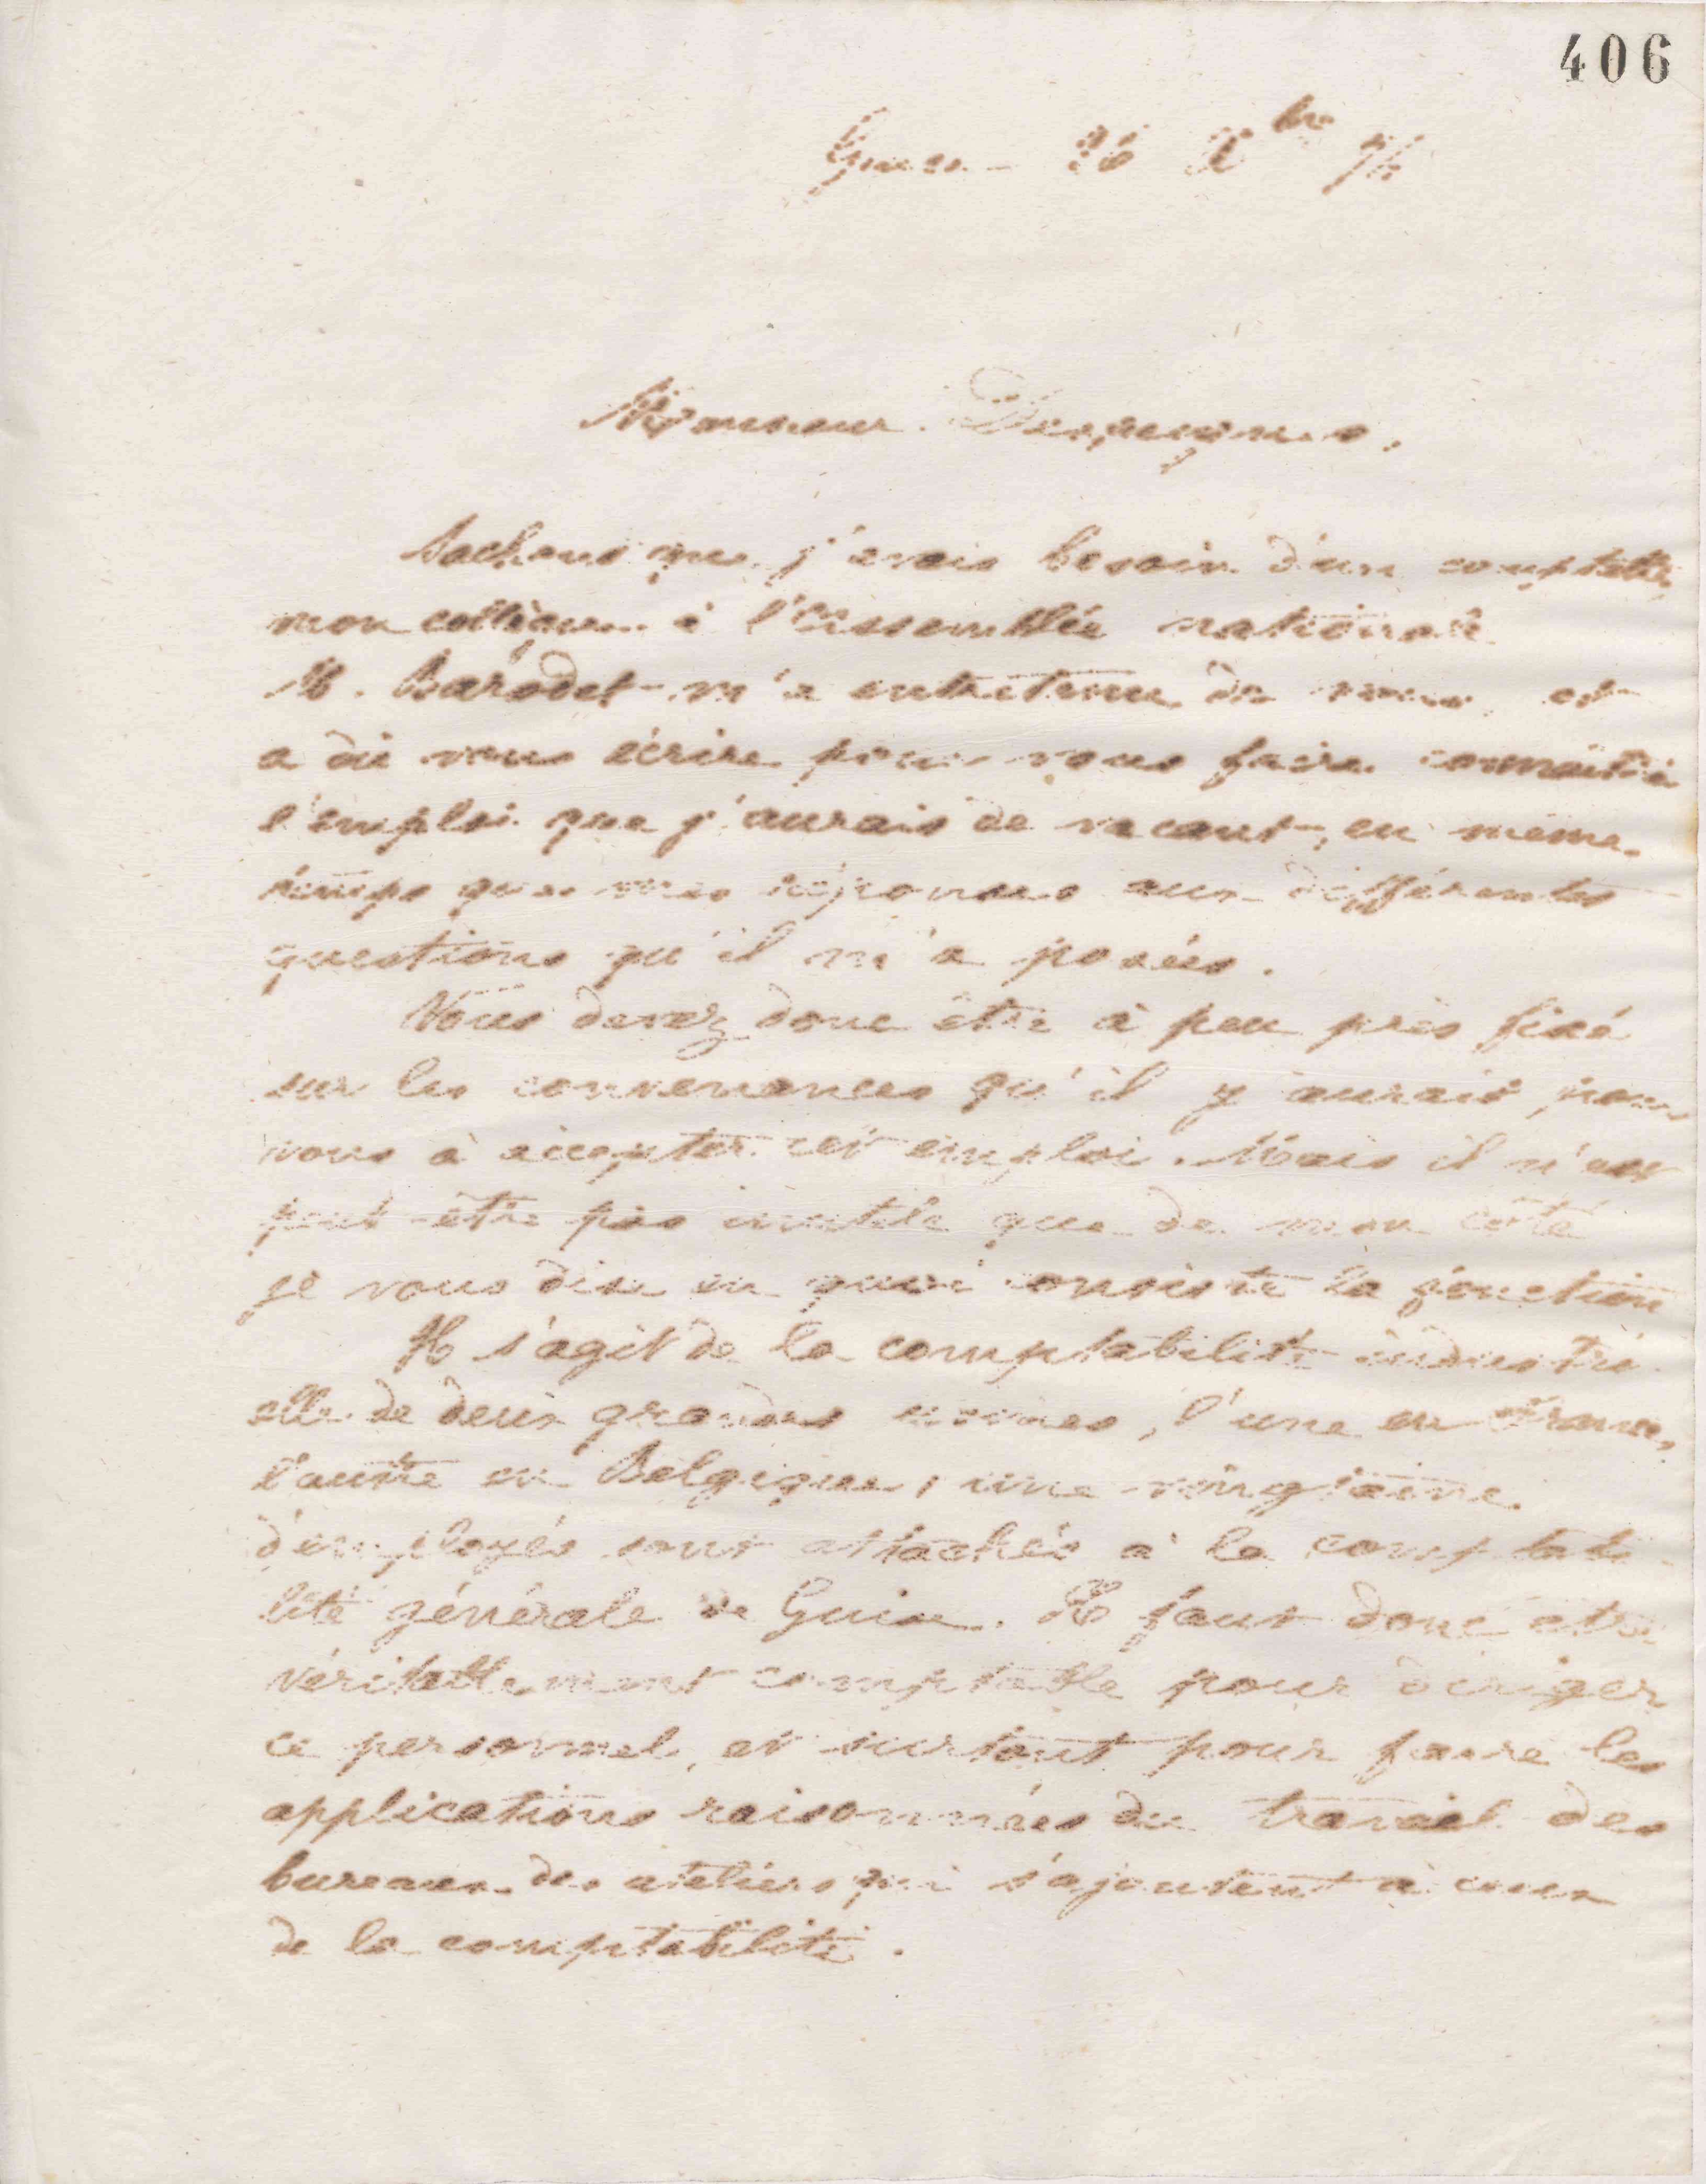 406
Guise 26 Xbre
Monsieur
Sachant que j'avais besoin d'un comptable,
mon collègue à l'Assemblée nationale
M. Barodet m'a entretenu de vous et
a dû vous écrire pour vous faire connaître
l'emploi que j'aurais de vacant, en même
temps que mes réponses aux différentes
questions qu'il m'a posées.
Vous devez donc être à peu près fixé
sur les convenances qu'il y aurait pour
vous à accepter cet emploi. Mais il n'est
peut-être pas inutile que de mon côté
je vous dise en quoi consiste la fonction
Il s'agit de la comptabilité industri
elle de deux grandes usines, l'une en France,
l'autre en Belgique, une vingtaine
d'employés sont attachés à la comptabi-
lité générale de Guise. Il faut donc être
véritablement comptable pour diriger
ce personnel, et surtout pour faire les
applications raisonnées du travail des
bureaux des ateliers qui s'ajoutent à ceux
de la comptabilité.